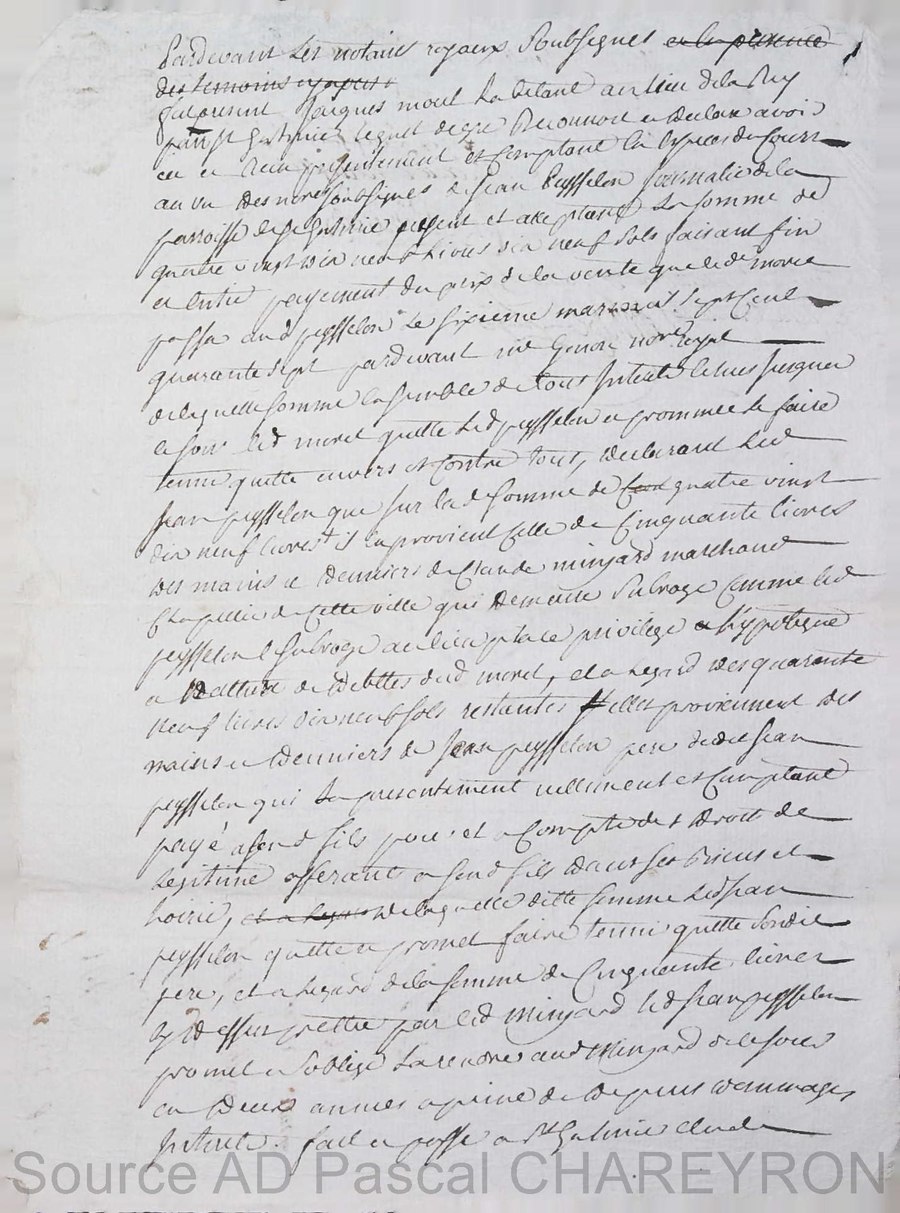 Pardevant les notaires royaux soubsignes en la presence
des temoins
fut present Jacques moret habitant au lieu de la
par st galmier lequel de gre reconnoit et declare avoir
eu et receu presentement et comptant en especes du cours
au vu des nores soubsignes de Jean peysselon journalié de la
parroisse de st galmier present et aceptant la somme de
quatre vingt dix neuf livres dix neuf sols faisant fin
et entier payement du prix de la vente que led moret
passa aud peysselon le sixieme mars mil sept cent
quarante sept pardevant me nore royal
de laquelle somme ensemble de tous interets echus jusques
a ce jour led moret quitte led peysselon et promet le faire
tenir quitte envers et contre tout, declarant led
Jean peysselon que sur lad somme de quatre vingt
dix neuf livres il en provient celle de Cinquante livres
des mains et deniers de Claude minjard marchand
Chapelier de cette ville qui demeure subroge comme led
peysselon le subroge au lieu place privilege et hypoteque
dud moret, et a legard des quarante
neuf livres dix neuf sols restantes elles proviennent des
mains et deniers de Jean peysselon pere dudit Jean
peysselon qui la presentement reellement et comptant
payé a sond fils pour et a compte des droit de
legitime afferants a sond fils dans ses biens et
hoirie, de laquelle ditte somme led Jean
peysselon quitte et promet faire tenir quitte sondit
pere, et a legard de la somme de Cinquante livres
cy dessus prettée par led minjard led Jean peysselon
promet et soblige la rendre aud minjard de ce jour
en deux années a peine de tous depens dommages
interets. fait et passé a st Galmier etude
Source AD Pascal CHAREYRON